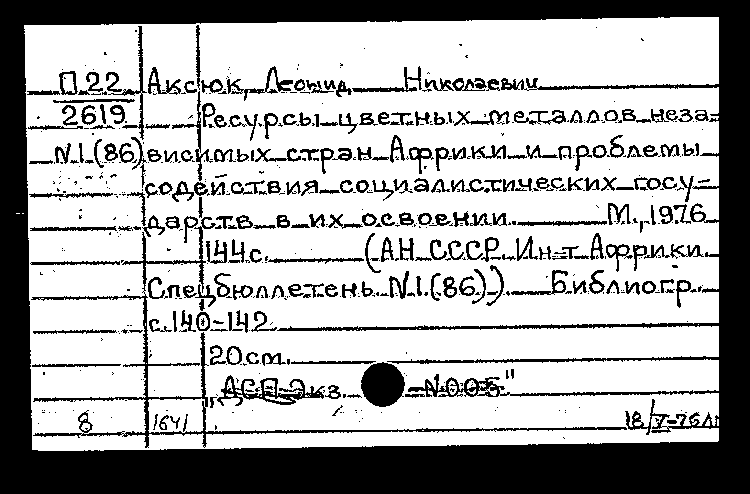 П22 Аксюк, Леонид Николаевич
2619 Ресурсы цветных металлов неза-
N1(86) висимых стран Африки и проблемы
содействия социалистических госу-
дарств в их освоении. М., 1976
144с. (АН СССР. Ин-т Африки.
Спецбюллетень N1.(86)). Библиогр.
с. 140-142
20см.
"ДСП-Экз. N005"
8 1641 18/V-76